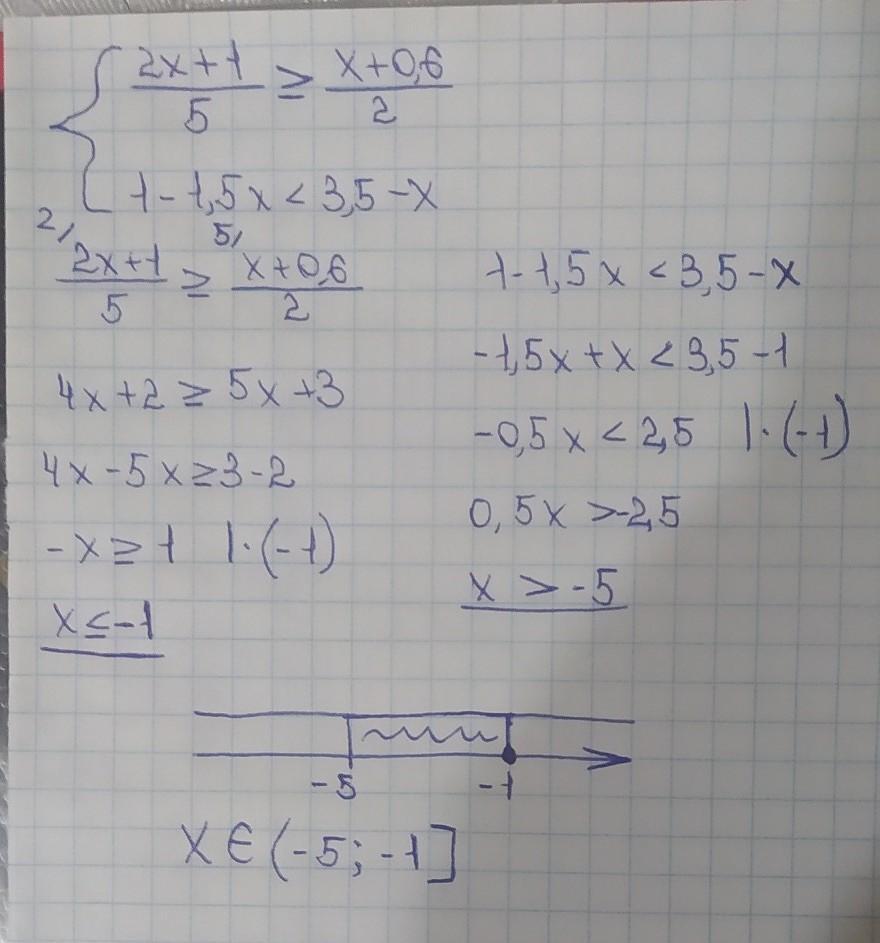 { (2x+1)/5 ≥ (x+0,6)/2
1-1,5x < 3,5-x
2/ 5/
(2x+1)/5 ≥ (x+0,6)/2
4x+2 ≥ 5x+3
4x-5x ≥ 3-2
-x ≥ 1 |·(-1)
x ≤ -1
1-1,5x < 3,5-x
-1,5x+x < 3,5-1
-0,5x < 2,5 |·(-1)
0,5x > -2,5
x > -5
-5 -1
x ∈ (-5; -1]